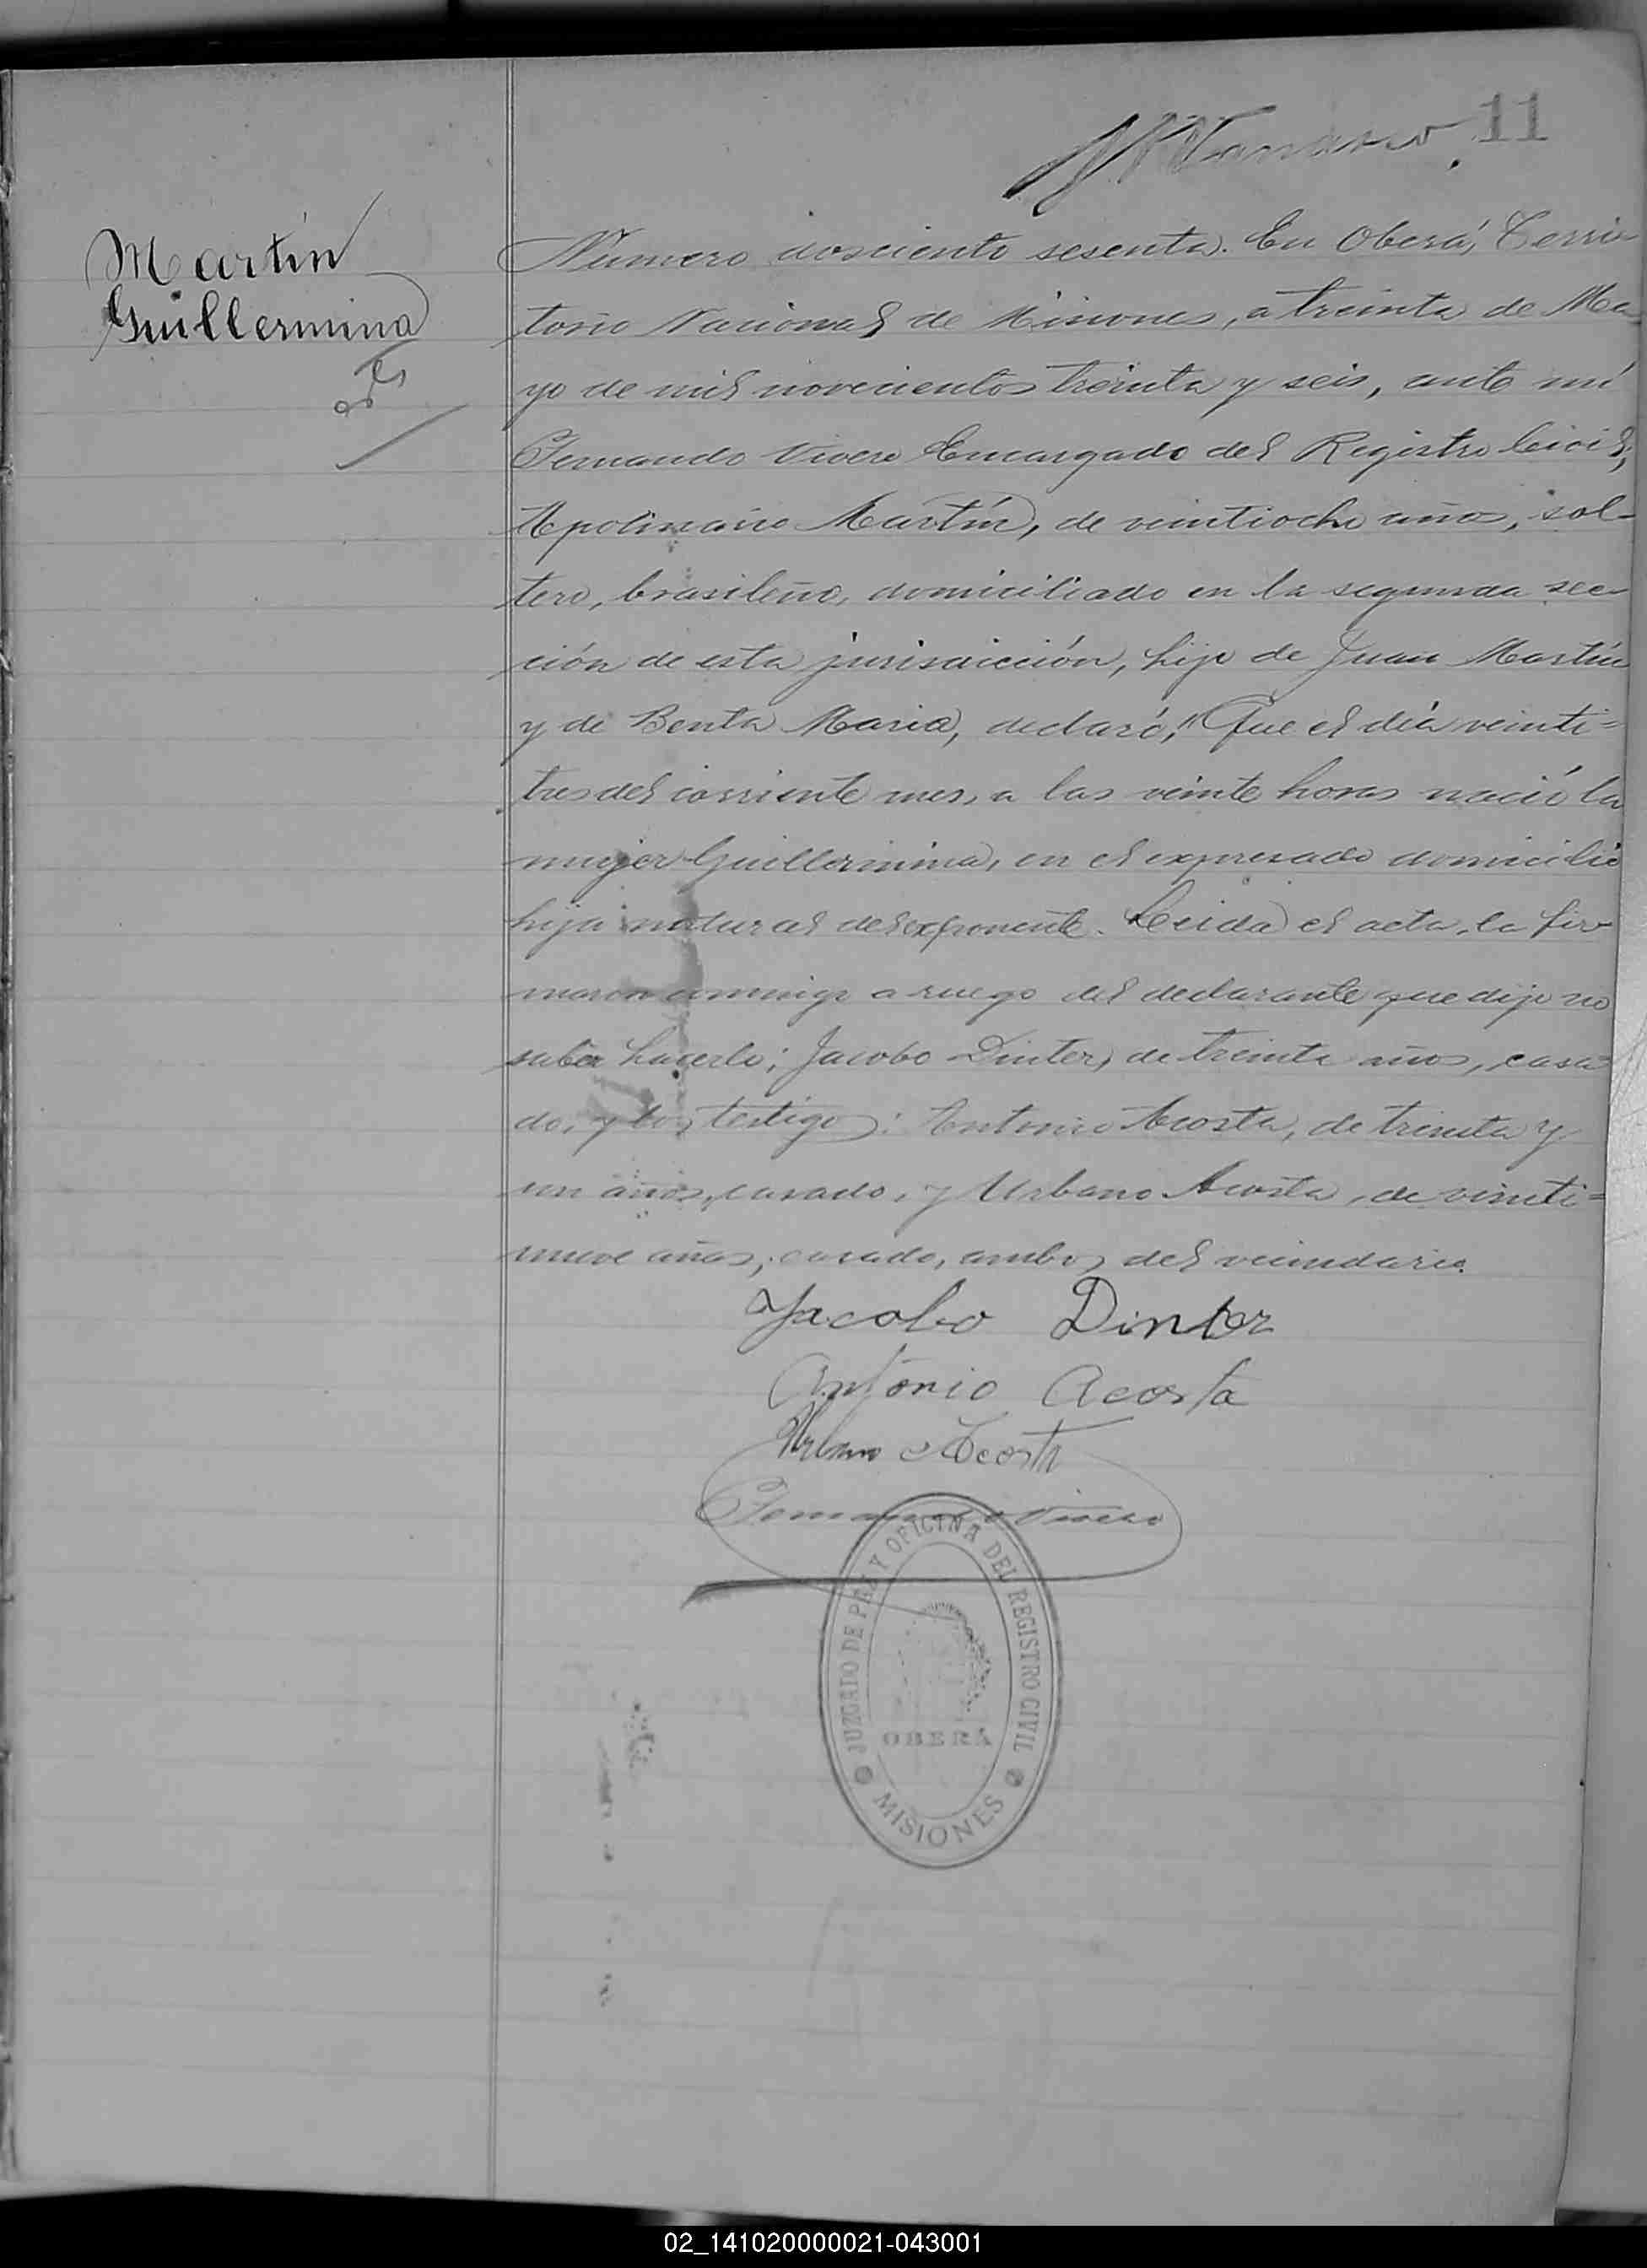 11
Martín
Guillermina
Numero dosciento sesenta. En Oberá, Terri-
torio Nacional de Misiones, a treinta de Ma
yo de mil novecientos treinta y seis, ante mí
Fernando Vivero Encargado del Registro Civil;
Apolinario Martín, de veintiocho años, sol-
tero, brasileño, domiciliado en la segunda sec-
ción de esta jurisdicción, hijo de Juan Martín
y de Benta Maria, declaró; "Que el día veinti=
tres del corriente mes, a las veinte horas nació la
mujer Guillermina, en el expresado domicilio
hija natural del exponente. Leida el acta, la fir-
maron conmigo a ruego del declarante que dijo no
saber hacerlo; Jacobo Dinter, de treinta años, casa
do, y los testigos: Antonio Acosta, de treinta y
un años, casado, y Urbano Acosta, de veinti=
nueve años, casado, ambos del vecindario.
Jacobo Dinter
Antonio Acosta
Urbano Acosta
Fernando Vivero
JUZGADO DE PAZ Y OFICINA DEL REGISTRO CIVIL
OBERÁ
MISIONES
02_141020000021-043001